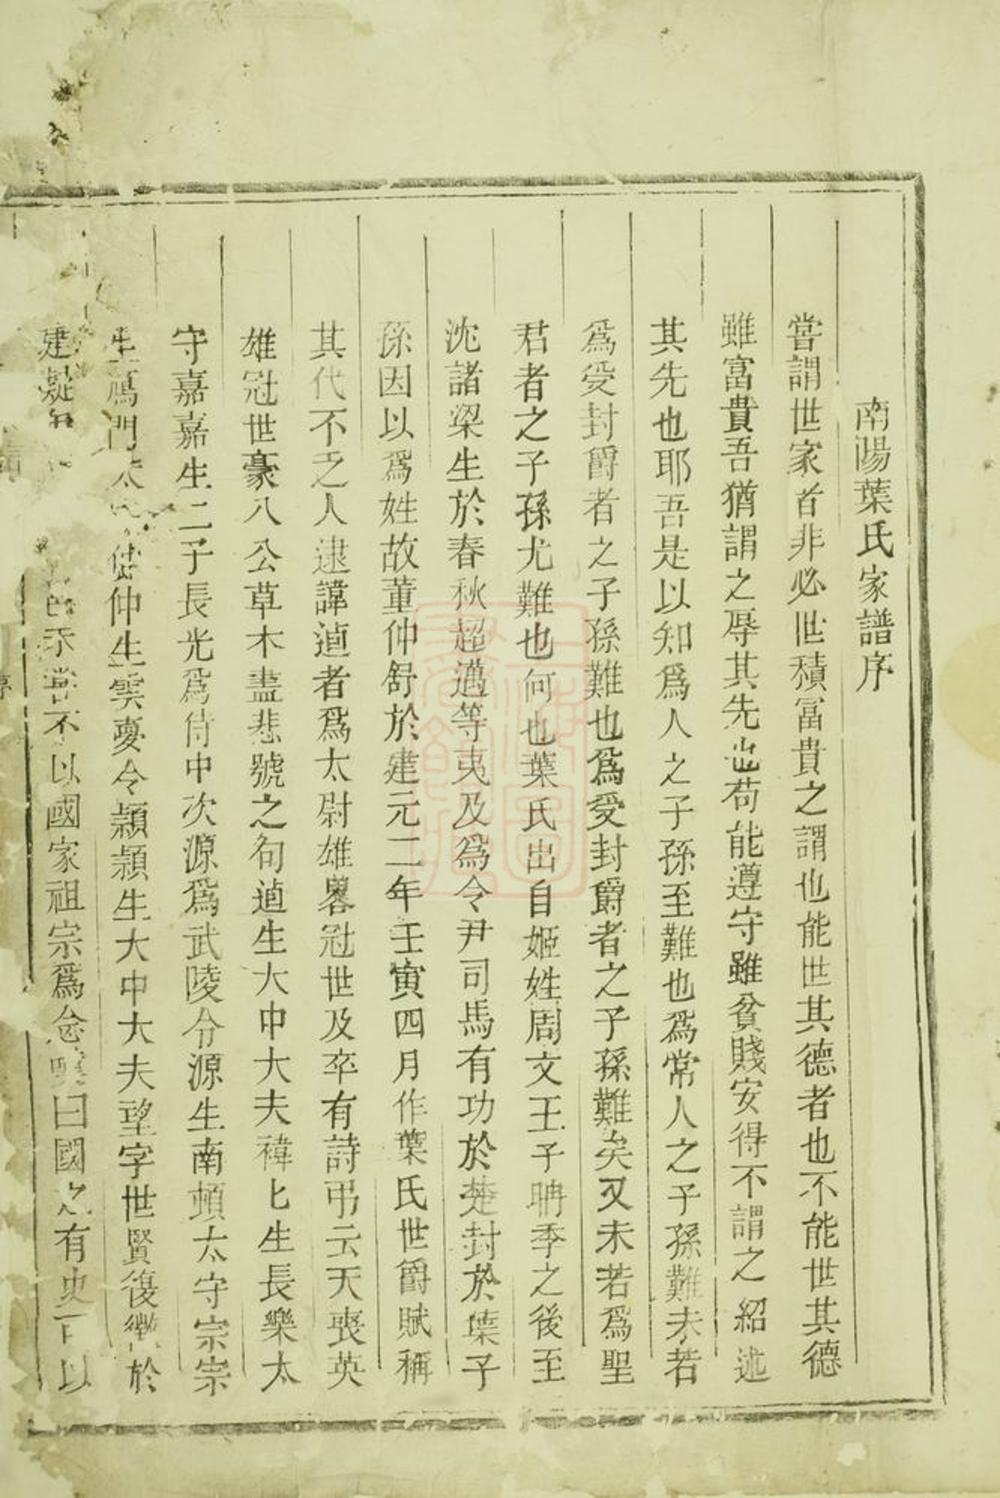 南陽葉氏家譜序
嘗謂世家者非必世積富貴之謂也能世其德者也不能世其德
雖富貴吾猶謂之辱其先也苟能遵守雖貧賤安得不謂之紹述
其先也耶吾是以知爲人之子孫至難也爲常人之子孫難未若
爲受封爵者之子孫難也爲受封爵者之子孫難矣又未若爲聖
君者之子孫尤難也何也葉氏出自姬姓周文王子聃季之後至
沈諸梁生於春秋超邁等夷及爲令尹司馬有功於楚封於葉子
孫因以爲姓故董仲舒於建元二年壬寅四月作葉氏世爵賦稱
其代不乏人逮諱逌者爲太尉雄畧冠世及卒有詩弔云天喪英
雄冠世豪八公草木盡悲號之句逌生大中大夫褘匕生長樂太
守嘉嘉生二子長光爲侍中次源爲武陵令源生南頓太守宗宗
生鴈門太仲仲生雲夢令顯顯生大中大夫望字世賢復徵於
建 不以國家祖宗爲念 曰國之有史可以